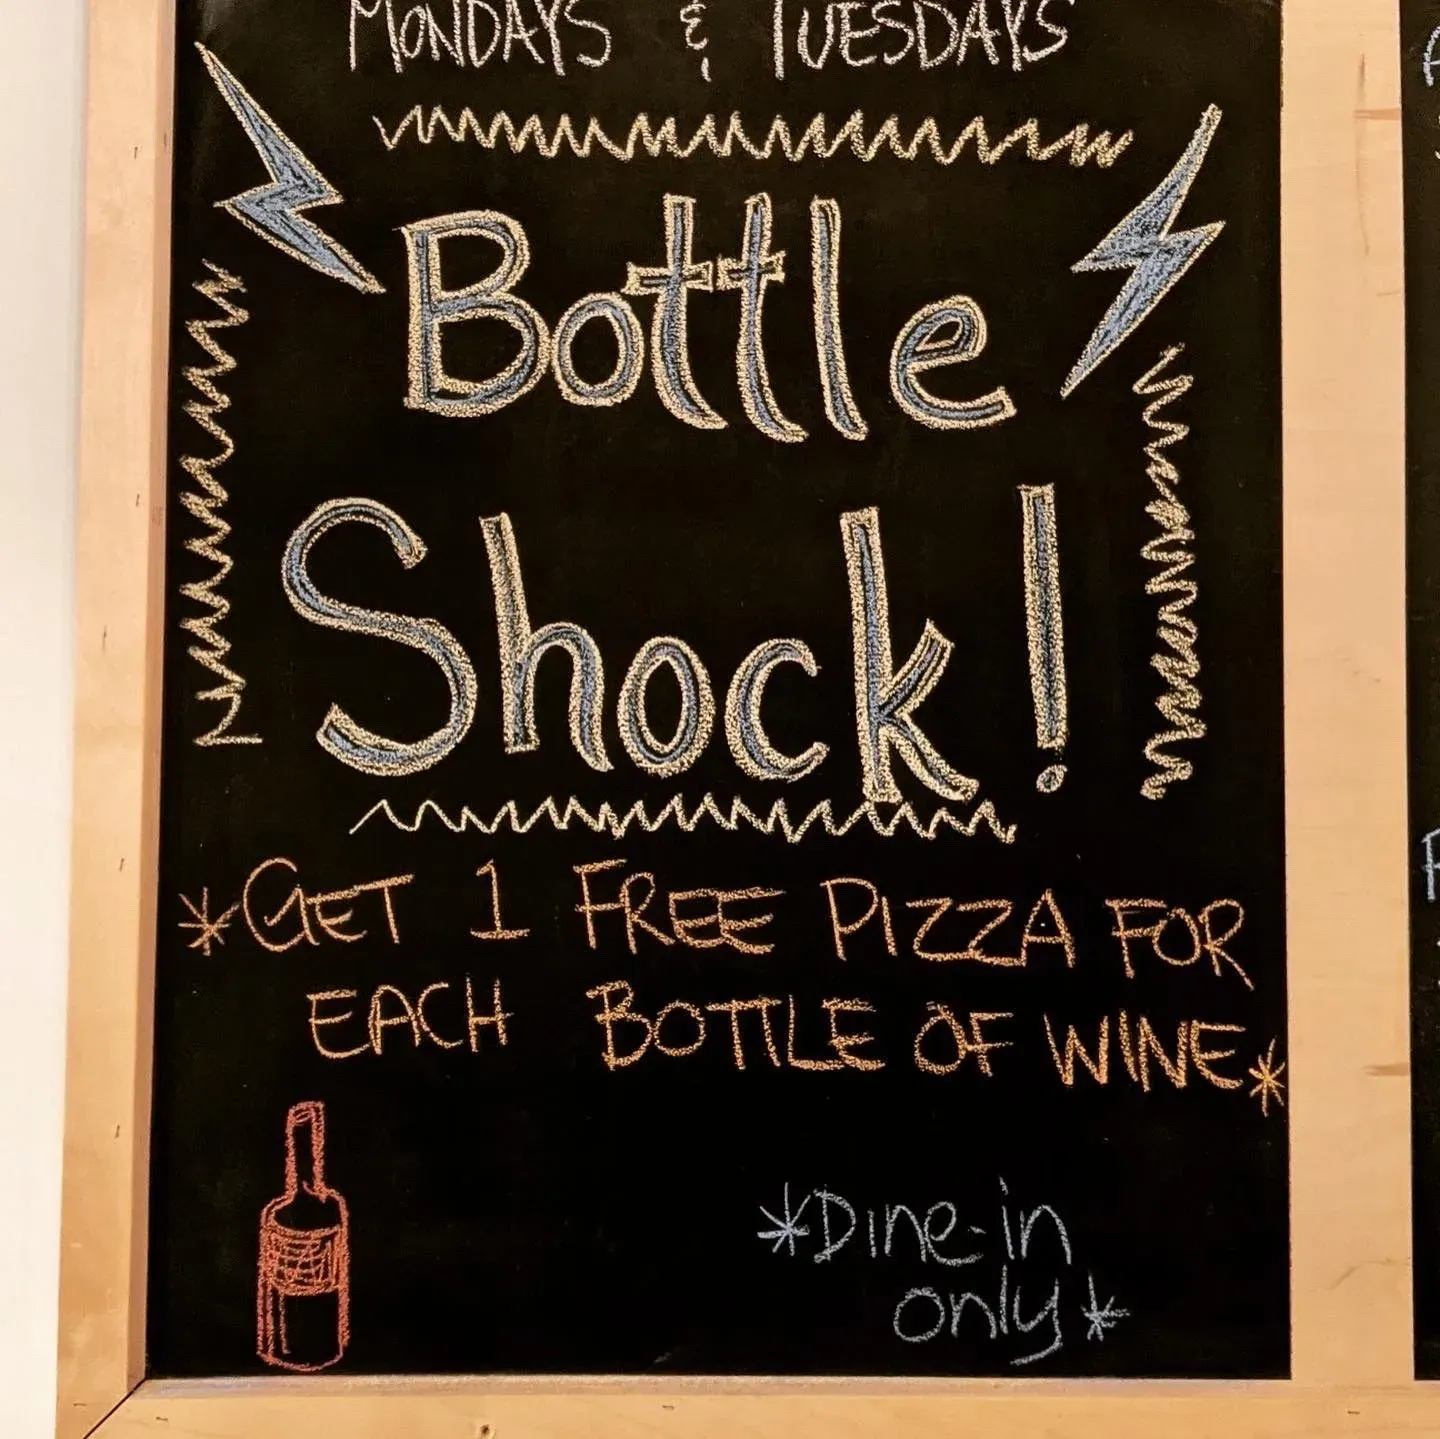 MONDAYS & TUESDAYS
Bottle
Shock!
*GET 1 FREE PIZZA FOR
EACH BOTTLE OF WINE*
*Dine-in
only*